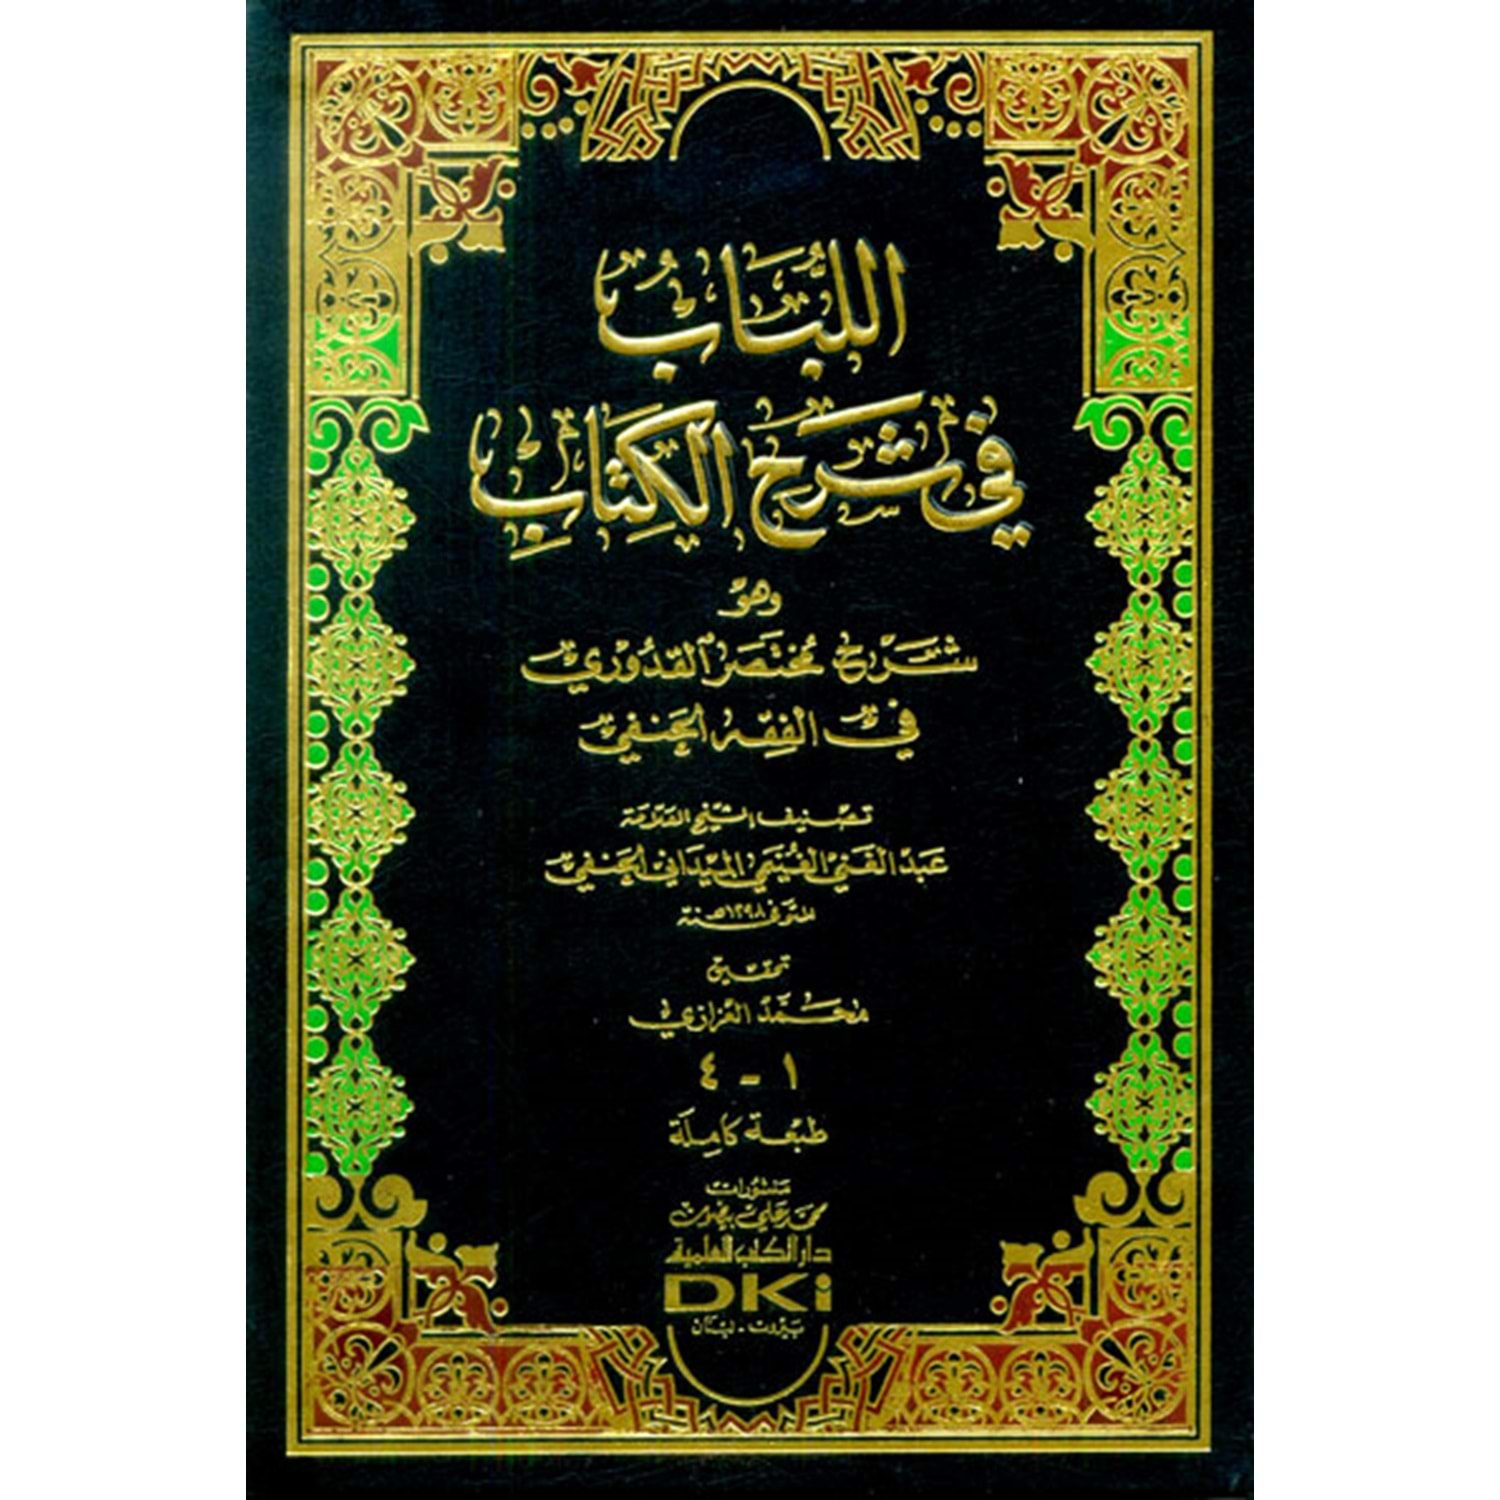 اللُّبَاب
في شَرح الكِتَاب
وهو
شَرح مختصَر القُدُوري
في الفِقه الحَنفي
تصنيف الشيخ العلامة
عَبد الغَني الغُنيمي الميداني الحَنفي
المتوفى ١٢٩٨هـ سنة
تحقيق
محمَّد العزازي
١ - ٤
طبعة كامِلة
منشورات
محمد علي بيضون
دار الكتب العلمية
DKi
بيروت - لبنان